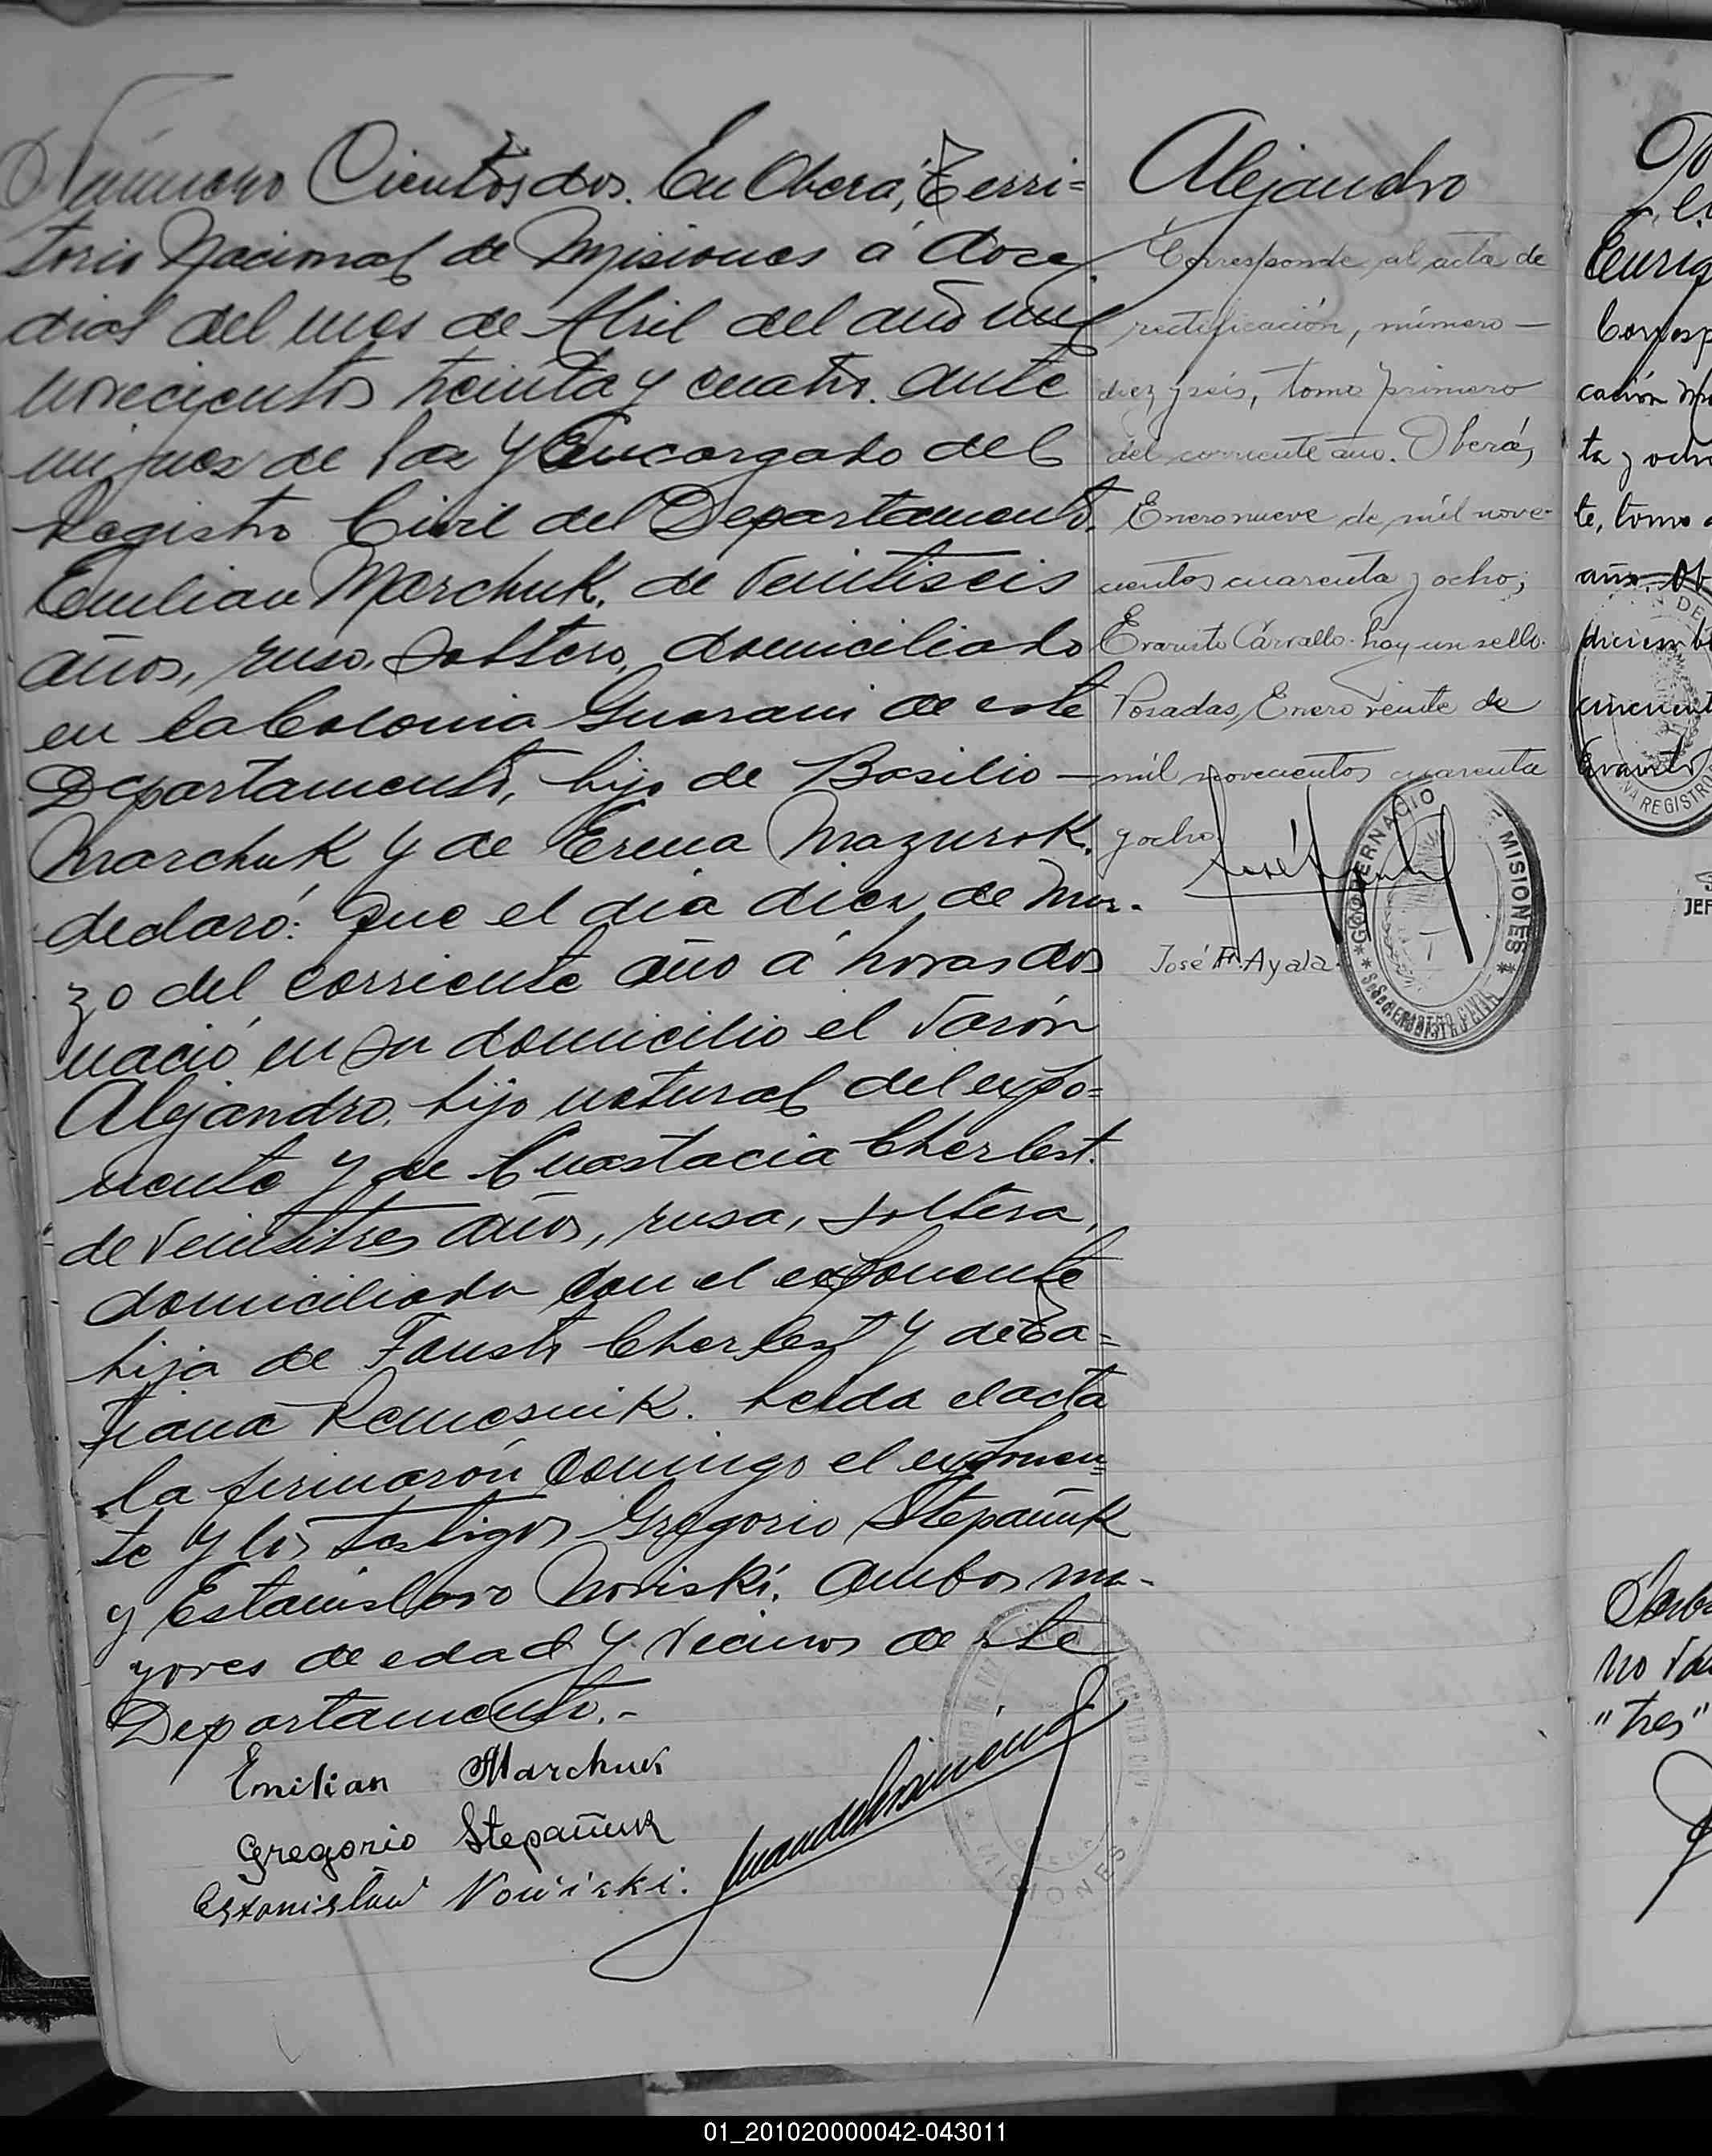 Número Ciento dos. En Oberá, Terri=
torio Nacional de Misiones á doce
dias del mes de Abril del año mil
novecientos treinta y cuatro. ante
mi juez de Paz y Encargado del
Registro Civil del Departamento.
Emilian Marchuk. de veintiseis
años, ruso, soltero, domiciliado
en la Colonia Guarani de este
Departamento, hijo de Basilio —
Marchuk y de Erena Mazurok.
declaró: Que el día diez de Mar-
zo del corriente año á horas dos
nació en su domicilio el varón
Alejandro. hijo natural del expo=
nente y de Anastacia Cherlest.
de veintitres años, rusa, soltera,
domiciliada con el exponente
hija de Fausto Cherlest y de Ta=
tiana Remesnik. Leida el acta
la firmarón conmigo el exponen=
te y los testigos Gregorio Stepañuk
y Estanislavo Noviski. ambos ma-
yores de edad y vecinos de este
Departamento.-
Emilian Marchuk
Gregorio Stepañuk
Estanislaw Nowiski.
Alejandro
Corresponde al acta de
rectificación, número —
diez y seis, tomo primero
del corriente año. Oberá,
Enero nueve de mil nove-
cientos cuarenta y ocho;
Evaristo Carvallo. hay un sello.
Posadas, Enero veinte de
mil novecientos cuarenta
y ocho
José A. Ayala.
GOBERNACIO
MISIONES
MISIONES
Enriq
Corresp
cación
ta y ocho
te, tomo
año. Ob
diciemb
cincuent
Evaristo
REGISTRO
JEF
no va
"tres"
01_201020000042-043011